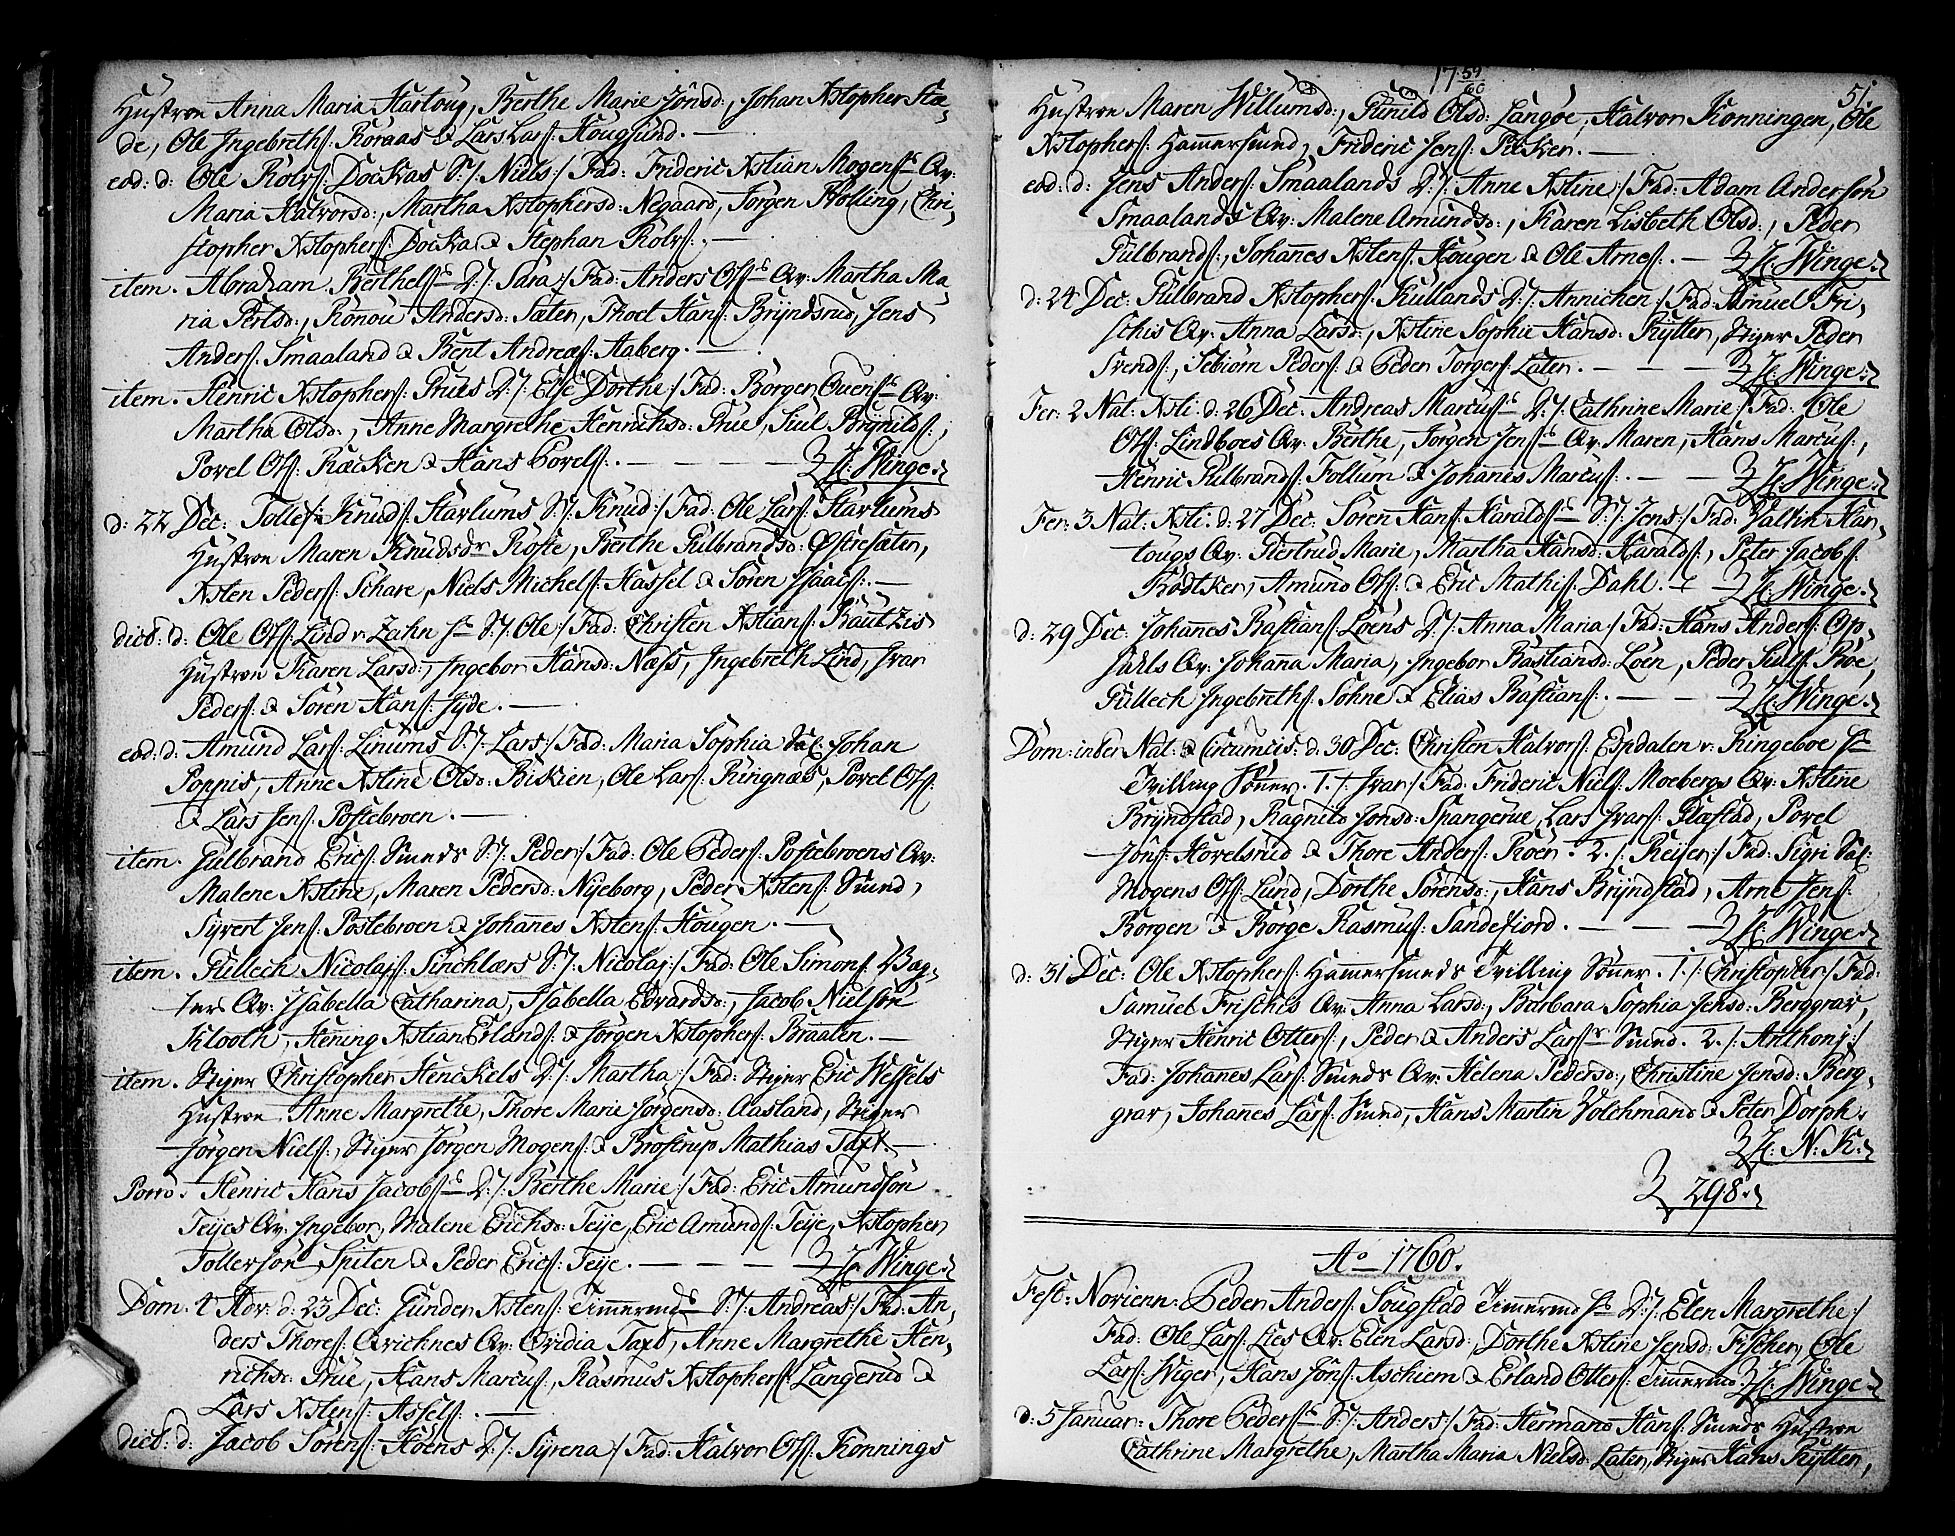 Hustroe Anna Maria Hartoug, Berthe Marie Jönsd:, Johan Xstopher Stæ-
de, Ole Ingebreths: Koraas & Lars Lars: Hougsund. —
eod: d: Ole Rolvs: Dockas S: /: Niels :/ Fad: Frideric Xstian Mogens: Qv:
Maria Halvorsd:, Martha Xstophersd: Negaard, Jörgen Rolling, Chri-
stopher Xstophers: Docka & Stephan Rolvs: . —
item. Abraham Berthels: D: /: Sara :/ Fad: Anders Ols: Qv: Martha Ma-
ria Perlsd:, Rönou Andersd: Sæter, Thoet Hans: Bryndsrud, Jens
Anders: Smaaland & Bent Andreæs: Aaberg. —
item. Henric Xstophers: Prües D: /: Else Dorthe :/ Fad: Borger Ouens: Qv:
Martha Olsd:, Anne Margrethe Henrichsd: Prüe, Juul Brynilds:,
Povel Ols: Ræcken & Hans Povels: . — — — — H: Winge.
d: 22 Dec: Tollef Knuds: Harlums S: /: Knud :/ Fad: Ole Lars: Harlums
Hustroe Maren Knudsdr Röste, Berthe Gulbrandsd: Østresæter,
Xsten Peders: Schare, Niels Michels: Hassel & Sören Isaacs: . —
dict: d: Ole Ols: Lind v: Zahn S: /: Ole :/ Fad: Christen Xstians: Bautzis
Hustroe Karen Larsd:, Ingebor Hansd: Næss, Ingebreth Lind, Ivar
Peders: & Sören Hans: Jyde. —
eod: d: Amund Lars: Linums S: /: Lars :/ Fad: Maria Sophia Sal: Johan
Poppis, Anne Xstine Olsd: Bikien, Ole Lars: Ringnæs, Povel Ols:
& Lars Jens: Postebroen. —
item. Gulbrand Erics: Smeds S: /: Peder :/ Fad: Ole Peders: Postebroens Qv:
Malene Xstine, Maren Pedersd: Nyeborg, Peder Xstens: Smed,
Syvert Jens: Postebroen & Johanes Xstens: Hougen. —
item. Gullech Nicolajs: Sinchlærs S: /: Nicolaj :/ Fad: Ole Simons: Bag-
ters Qv: Isabella Catharina, Isabella Edvardsd:, Jacob Nielsön
Klooth, Hening Xstian Erlands: & Jörgen Xstophers: Braaten. —
item. Stiger Christopher Henckels D: /: Martha :/ Fad: Stiger Eric Wessels
Hustroe Anne Margrethe, Thore Marie Jörgensd: Aasland, Stiger
Jörgen Niels:, Stiger Jörgen Mogens: & Brostrup Mathias Taxt. —
Porro. Henric Hans Jacobs: D: /: Berthe Marie :/ Fad: Eric Amundsön
Teyes Qv: Ingebor, Malene Erichsd: Teye, Eric Amunds: Teye, Xstopher
Tollersön Spiten & Peder Erics: Teye. — — — — H: Winge.
Dom: 4 Adv: d: 23 Dec: Gunder Xstens: Timermds S: /: Andreas :/ Fad: An-
ders Thores: Qvichnes Qv: Ovidia Taxt, Anne Margrethe Hen-
richsd: Prüe, Hans Marcus:, Rasmus Xstophers: Langerud &
Lars Xstens: Assels: . —
dict: d: Jacob Sörens: Hoens D: /: Syrena :/ Fad: Halvor Ols: Konnings
17 59/60
51.
Hustroe Maren Willumsd:, Gunild Olsd: Langøe, Halvor Konningen, Ole
Xstophers: Hamersmed, Frideric Jens: Pisker. —
eod: d: Jens Anders: Smaalands D: /: Anne Xstine :/ Fad: Adam Andersön
Smaalands Qv: Malene Amundsd:, Karen Lisbeth Olsd:, Peder
Gulbrands:, Johanes Xstens: Hougen & Ole Arnes: . — H: Winge.
d: 24 Dec: Gulbrand Xstophers: Rullands D: /: Annichen :/ Fad: Samuel Fri-
schis Qv: Anna Larsd:, Xstine Sophie Hansd: Rytter, Stiger Peder
Svends:, Sebiörn Peders: & Peder Torgers: Later. — — — H: Winge.
Fer: 2 Nat: Xsti: d: 26 Dec: Andreas Marcus: D: /: Cathrine Marie :/ Fad: Ole
Ols: Lindboes Qv: Berthe, Jörgen Jens: Qv: Maren, Hans Marcus:,
Henric Gulbrands: Follum & Johanes Marcus: . — — H: Winge.
Fer: 3 Nat: Xsti: d: 27 Dec: Sören Hans: Haralds: S: /: Jens :/ Fad: Valtin Har-
tougs Qv: Giertrud Marie, Martha Hansd: Haralds:, Peter Jacobs:
Bödtker, Amund Ols: & Eric Mathis: Dahl. — — H: Winge.
d: 29 Dec: Johannes Bastians: Loens D: /: Anna Maria :/ Fad: Hans Anders: Op-
sahls Qv: Johana Maria, Ingebor Bastiansd: Loen, Peder Juuls: Röe,
Gullech Ingebreths: Sohne & Elias Bastians: . — — H: Winge.
Dom: inter Nat: & Circumcis: d: 30 Dec: Christen Halvors: Espdalen v: Ringeboe
Tvilling Söner. 1. /: Ivar :/ Fad: Frideric Niels: Moebergs Qv: Xstine
Bryndstad, Ragnild Jonsd: Spangrue, Lars Ivars: Flæstad, Povel
Jöns: Hovelsrud & Thore Anders: Röer. 2. /: Reiser :/ Fad: Sigri Sal:
Mogens Ols: Lund, Dorthe Sörensd:, Hans Bryndstad, Arne Jens:
Borgen & Borge Rasmus: Sandefiord. — — — H: Winge.
d: 31 Dec: Ole Xstophers: Hamersmeds Tvilling Söner. 1. /: Christopher :/ Fad:
Samuel Frischis Qv: Anna Larsd:, Barbara Sophia Jensd: Berggrav,
Stiger Henric Otters:, Peder & Anders Lars: Smed. 2. /: Anthony :/
Fad: Johanes Lars: Smeds Qv: Helena Pedersd:, Christine Jensd: Berg-
grav, Johannes Lars: Smed, Hans Martin Volchmand & Peter Dorph.
H: N. K:
298.
Ao 1760.
Fest: Novi enn: Peder Anders: Sougstad Timermd D: /: Elen Margrethe :/
Fad: Ole Lars: Lies Qv: Elen Larsd:, Dorthe Xstine Jensd: Fischer, Ole
Lars: Wiger, Hans Jöns: Aschiem & Erland Otters: Timermd. H: Winge.
d: 5 Januar: Thore Peders: S: /: Anders :/ Fad: Hermand Hans: Smeds Hustroe
Cathrine Margrethe, Martha Maria Nielsd: Later, Stiger Hans Rytter,